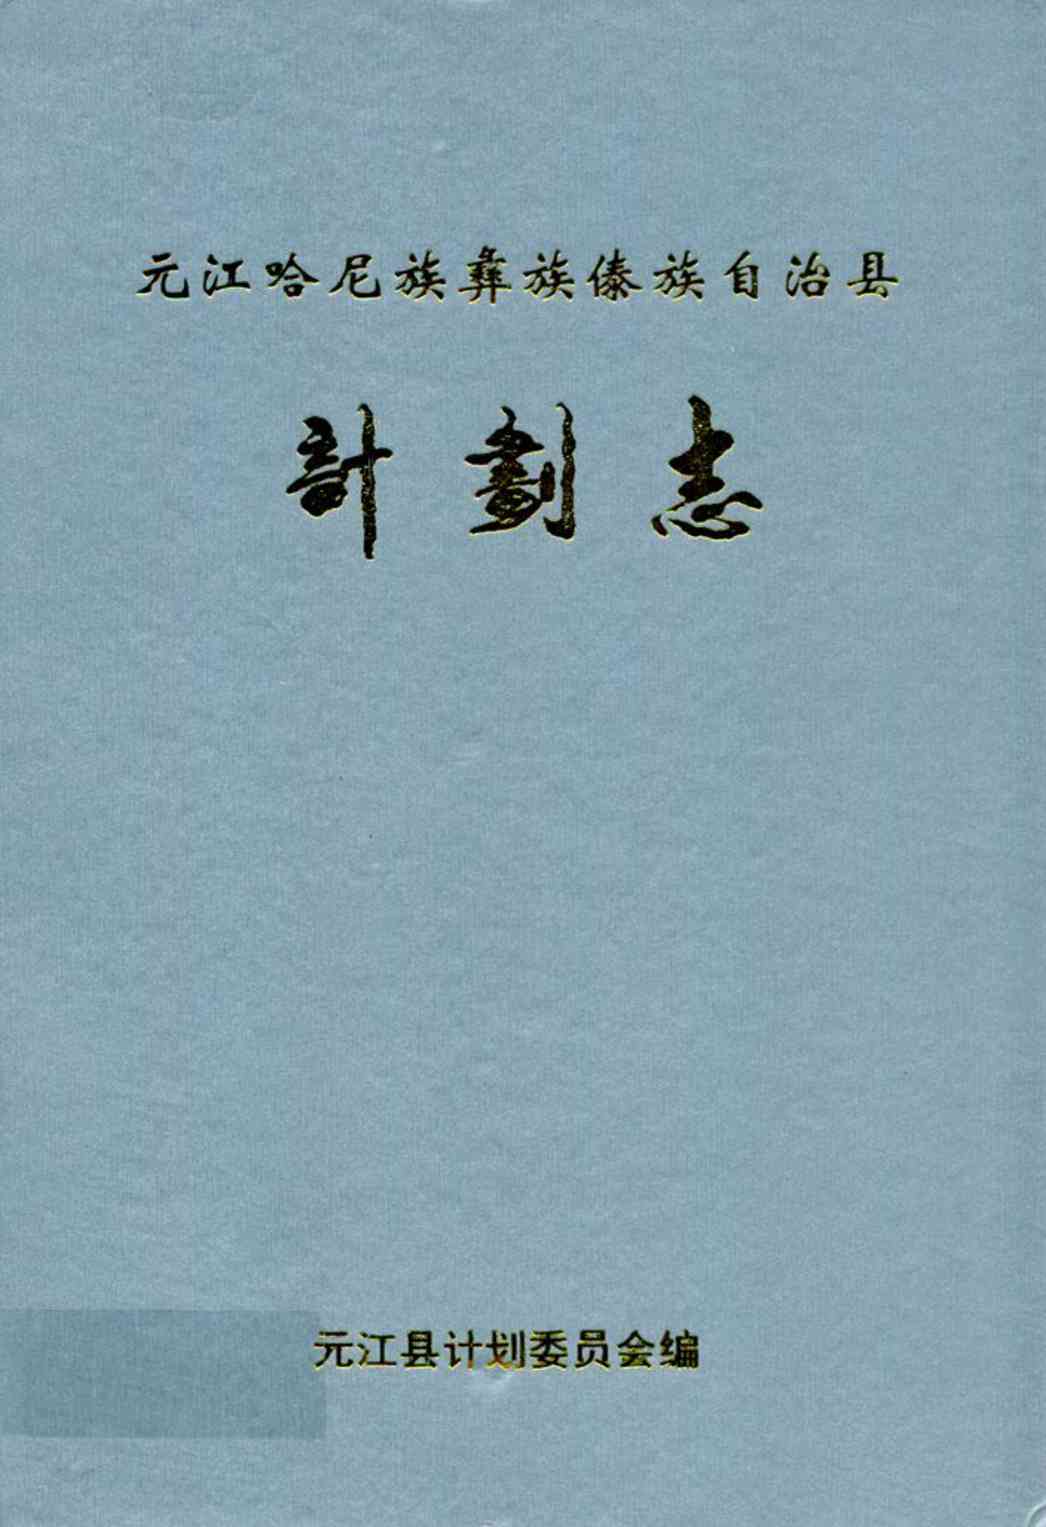 元江哈尼族彝族傣族自治县
計劃志
元江县计划委员会编